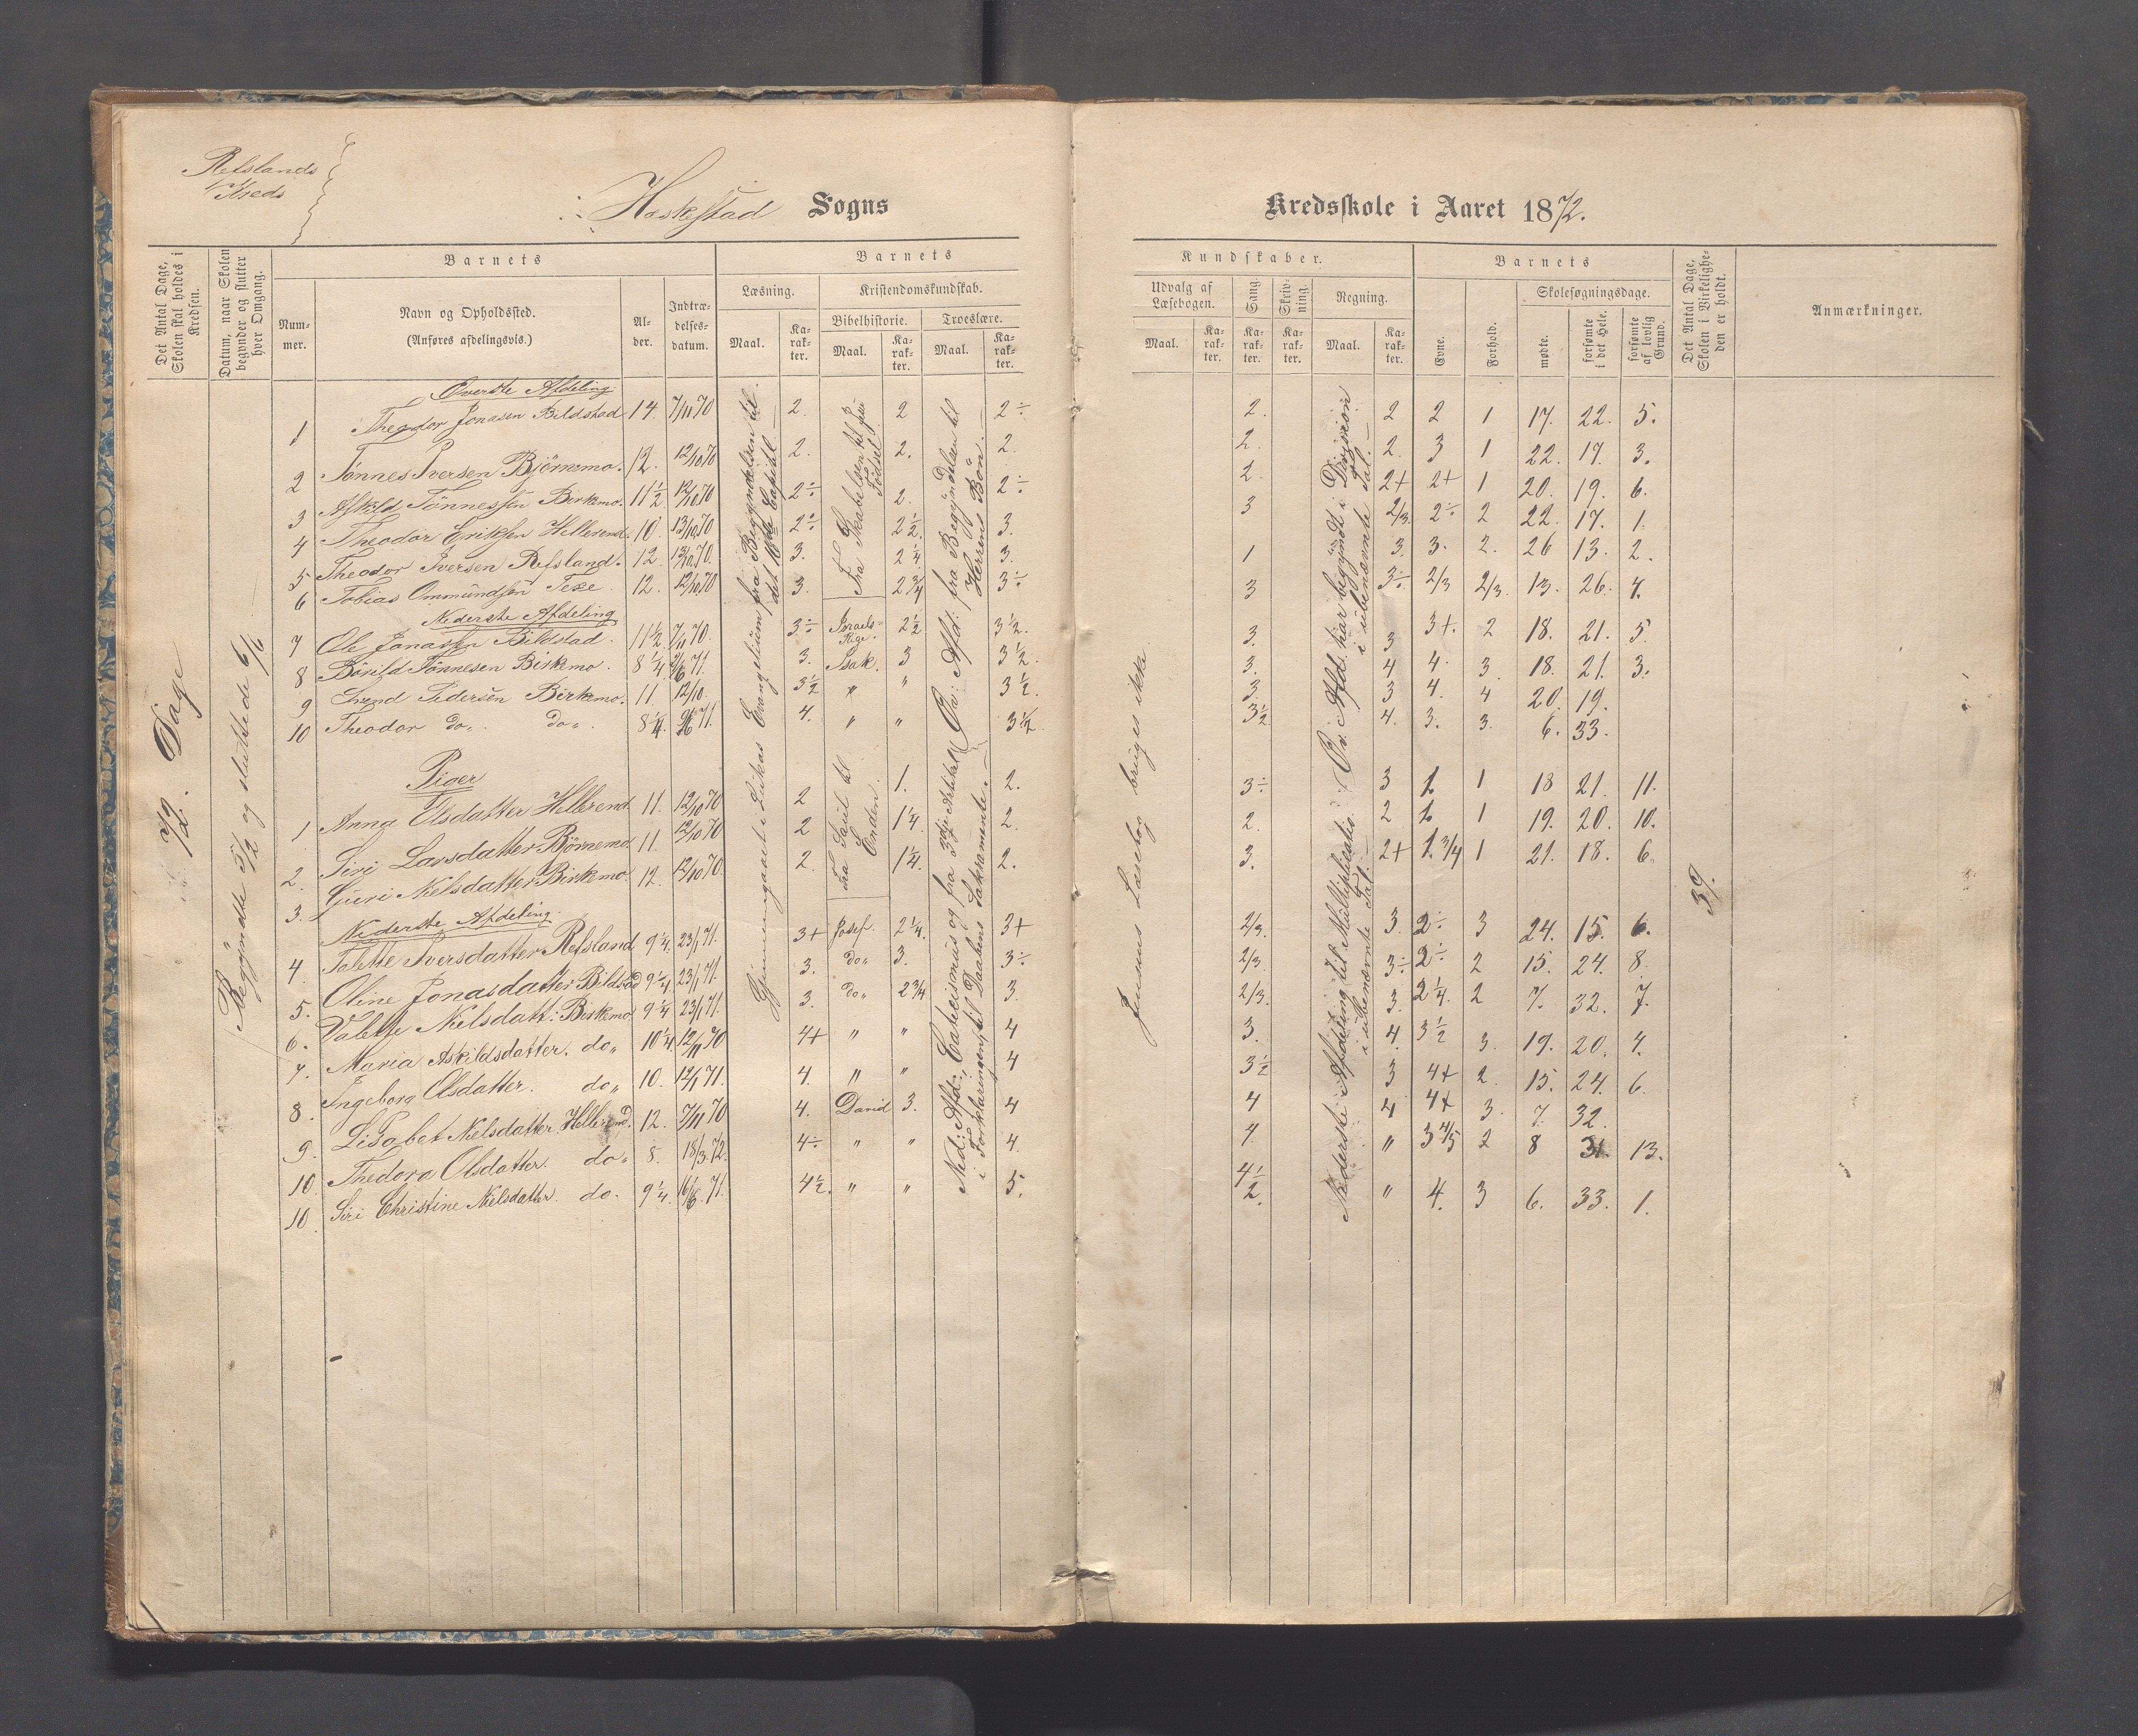 Refslands
Kreds
Heskestad Sogns
Kredsskole i Aaret 1872.
Det Antal Dage, Skolen skal holdes i Kredsen.
Datum, naar Skolen begynder og slutter hver Omgang.
Barnets
Num-mer.
Navn og Opholdssted.
(Anføres afdelingsvis.)
Al-der.
Indtræ-delses-datum.
Barnets
Læsning.
Maal.
Ka-rak-ter.
Kristendomskundskab.
Bibelhistorie.
Maal.
Ka-rak-ter.
Troeslære.
Maal.
Ka-rak-ter.
Kundskaber.
Udvalg af Læsebogen.
Maal.
Ka-rak-ter.
Sang.
Ka-rak-ter.
Skriv-ning.
Ka-rak-ter.
Regning.
Maal.
Ka-rak-ter.
Barnets
Evne.
Forhold.
Skolesøgningsdage.
mødte.
forsømte i det Hele.
forsømte af lovlig Grund.
Det Antal Dage, Skolen i Virkelighe-den er holdt.
Anmærkninger.
72. Dage
Begyndte 5/2 og sluttede 6/6
Øverste Afdeling
1 Theodor Jonasen Bildstad 14. 7/11 70 2. 2 2÷ 2. 2 2 1 17. 22. 5.
2 Tønnes Iversen Bjørnemo. 12. 12/10 70 2. 2. 2. 2. 2. 3 1 22. 17. 3.
3 Askild Tønnessen Birkemo. 11½ 12/10 70 2÷ 2. 2÷ 2. 2+ 2+ 1 20. 19. 6.
4 Theodor Eriksen Hellerend. 10. 13/10 70 2÷ 2½ 3. 3 2/3. 2÷ 2 22. 17. 1.
5 Theodor Iversen Refsland. 12. 12/10 70. 3. 2¼ 3. 1 3. 3. 2. 26 13. 2.
6 Tobias Ommundsen Texe. 12. 12/10 70 3. 2¾ 3÷ 3 3÷ 2/3 2/3. 13. 26. 4.
Nederste Afdeling
7 Ole Jonassen Bildstad. 11½ 7/11 70. 3÷ Israels-Rige. 2½ 3½. 3. 3 3+. 2 18. 21. 5.
8 Børild Tønnesen Birkemo. 8¼ 71. 3. Isak. 3 3½. 3. 4 4. 3. 18. 21. 3.
9 Svend Pedersen Birkemo. 11. 12/10. 3½ " " 3½. 3. 3 4. 4 20. 19.
10 Theodor do„ do„. 8¼. 71. 4. " " 3½. 3½ 4. 3. 3. 6. 33.
Piger
1. Anna Olsdatter Hellerend. 11. 12/10 70 2 1. 2. 3÷ 3 1 1 18 21. 11.
2. Siri Larsdatter Börnemo 11. 12/10 70 2 1¼. 2. 2. 2 1 1 19. 20. 10.
3. Guri Nielsdatter Birkemo. 12. 12/10 70. 2. 1¼. 2. 3. 2+ 1.¾ 1 21. 18. 6.
Nederste Afdeling.
4. Talette Iversdatter Refsland 9¼. 23/1 71. 3+ Josef. 2¼. 3+ 2/3. 3. 2÷ 3 24. 15. 6.
5. Oline Jonasdatter Bildstad 9¼. 23/1 71. 3. do„ 3. 3÷ 2/3 3÷ 2÷ 2 15. 24. 8.
6. Valette Nielsdatt: Birkemo 9¼ 23/1 71. 3. do„ 2¾ 3. 2/3. 3. 2¼. 2 7. 32. 7.
7. Maria Askildsdatter. do„ 10¼. 12/11 70 4+ " " 4 3. 4. 3½ 3. 19. 20. 4.
8. Ingeborg Olsdatter. do„ 10. 12/1 71. 4. " " 4 3½ 3 4+ 2. 15. 24. 6.
9. Lisabet Nielsdatter. Hellerend. 12. 7/11 70 4. David 3. 4 4 4 4+ 3. 7. 32.
10. Thedora Olsdatter. do„ 8. 18/3 72. 4÷ " " 4. 4 " 3⅘ 2 8 31. 13.
10. Siri Christine Nielsdatter. do. 9¼. 16/6 71. 4½. " " 5. 4½. " 4. 3 6. 33. 1.
Gjennemgaaet i Lukas Evangelium fra Begyndelsen til det 10de Capitel.
Fra Skabelsen til Jesu Fødsel
Fra Saul til Enden.
Øv: Afd: fra Begyndelsen til Herrens Bøn.
Ned: Afd:, Catecismus og fra 3dje Artikel i Forklaringen til Daabens Sakramente.
Jensens Læsebog bruges ikke
Øv: Afd. har begyndt i Division i ubenævnte Tal.
Nederste Afdeling til Multiplication i ubenævnte Tal.
39.